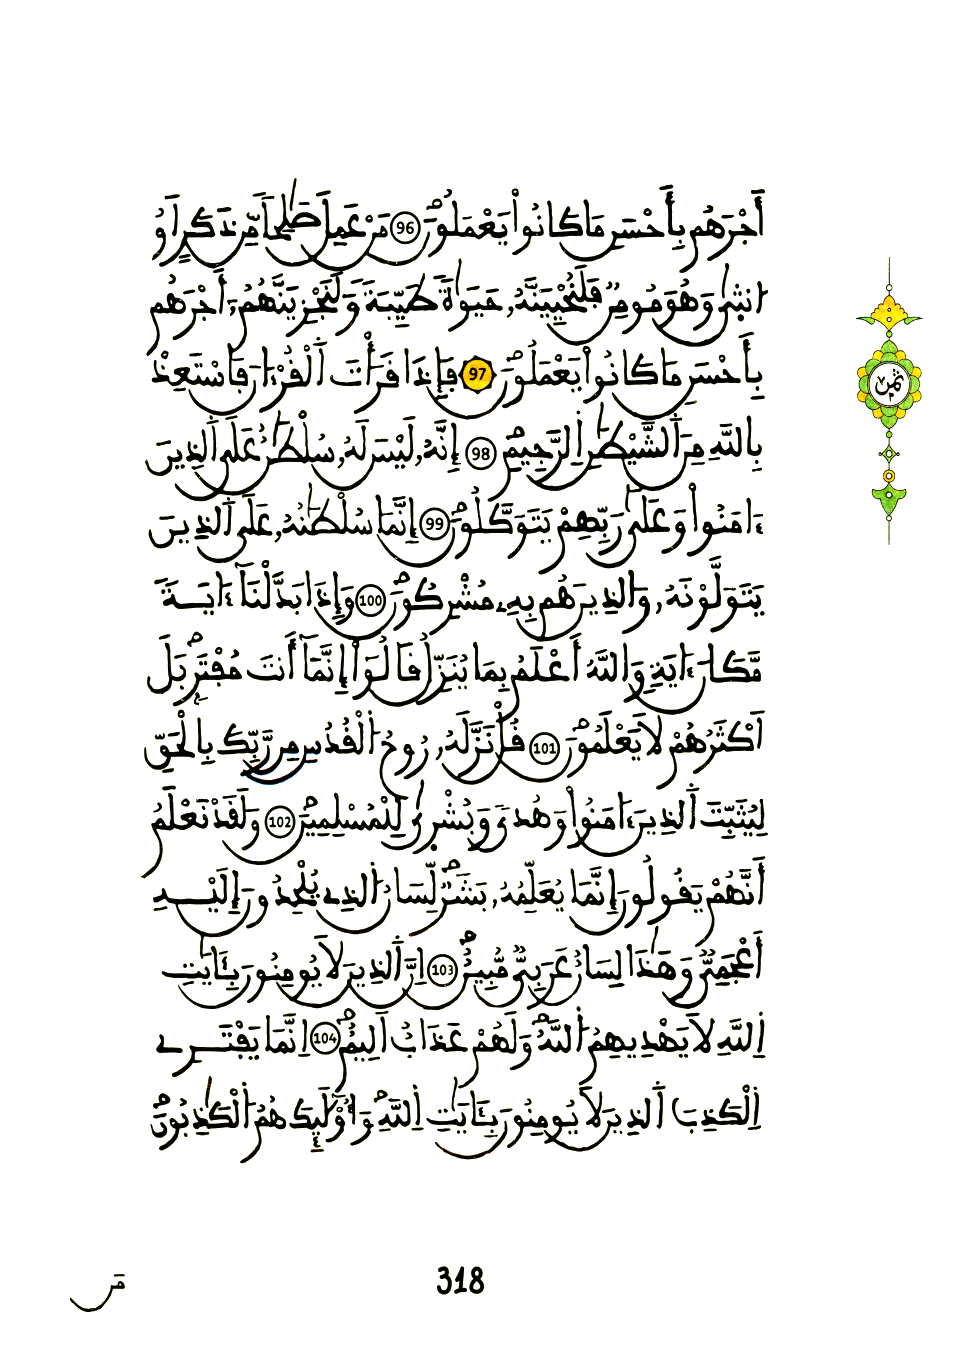 أَجْرَهُم بِأَحْسَنِ مَا كَانُواْ يَعْمَلُونَ 96 مَنْ عَمِلَ صَٰلِحاً مِّن ذَكَرٍ اَوُ
ا۟نث۪يٰ وَهُوَ مُومِنٞ فَلَنُحْيِيَنَّهُۥ حَيَوٰةٗ طَيِّبَةٗ وَلَنَجْزِيَنَّهُمُۥٓ أَجْرَهُم
بِأَحْسَنِ مَا كَانُواْ يَعْمَلُونَ 97 فَإِذَا قَرَأْتَ اَ۬لْقُرْءَانَ فَاسْتَعِذْ
بِاللَّهِ مِنَ اَ۬لشَّيْطَٰنِ اِ۬لرَّجِيمِ 98 إِنَّهُۥ لَيْسَ لَهُۥ سُلْطَٰنٌ عَلَي اَ۬لذِينَ
ءَامَنُواْ وَعَلَىٰ رَبِّهِمْ يَتَوَكَّلُونَ 99 إِنَّمَا سُلْطَٰنُهُۥ عَلَي اَ۬لذِينَ
يَتَوَلَّوْنَهُۥ وَالذِينَ هُم بِهِۦ مُشْرِكُونَ 100 وَإِذَا بَدَّلْنَآ ءَايَةٗ
مَّكَانَ ءَايَةٖ وَاللَّهُ أَعْلَمُ بِمَا يُنَزِّلُ قَالُوٓاْ إِنَّمَآ أَنتَ مُفْتَرِۢ بَلَ
اَكْثَرُهُمْ لَا يَعْلَمُونَ 101 قُلْ نَزَّلَهُۥ رُوحُ اُ۬لْقُدُسِ مِن رَّبِّكَ بِالْحَقِّ
لِيُثَبِّتَ اَ۬لذِينَ ءَامَنُواْ وَهُديٗ وَبُشْر۪يٰ لِلْمُسْلِمِينَ 102 وَلَقَدْ نَعْلَمُ
أَنَّهُمْ يَقُولُونَ إِنَّمَا يُعَلِّمُهُۥ بَشَرٞ لِّسَانُ اُ۬لذِے يُلْحِدُونَ إِلَيْهِ
أَعْجَمِيّٞ وَهَٰذَا لِسَانٌ عَرَبِيّٞ مُّبِينٌ 103 اِنَّ اَ۬لذِينَ لَا يُومِنُونَ بِـَٔايَٰتِ
اِ۬للَّهِ لَا يَهْدِيهِمُ اُ۬للَّهُ وَلَهُمْ عَذَابٌ اَلِيمٌ 104 اِنَّمَا يَفْتَرِے
اِ۬لْكَذِبَ اَ۬لذِينَ لَا يُومِنُونَ بِـَٔايَٰتِ اِ۬للَّهِ وَأُوْلَٰٓئِكَ هُمُ اُ۬لْكَٰذِبُونَ
ثمن
318
مَن